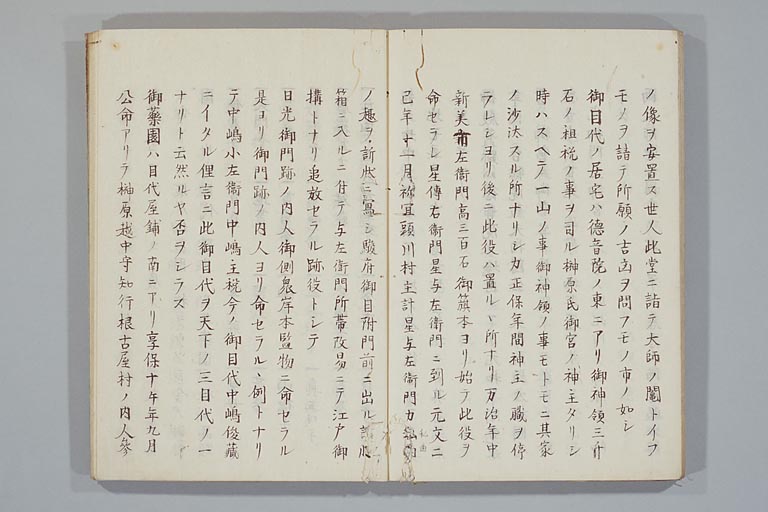 ノ像ヲ安置ス世人此堂ニ詣テ大師ノ鬮トイフ
モノヲ詣テ所願ノ吉凶ヲ問フモノ市ノ如シ
御目代ノ居宅ハ德音院ノ東ニアリ御神領三千
石ノ租税ノ事ヲ司ル榊原氏御宮ノ神主タリシ
時ハスヘテ一山ノ事御神領ノ事モトモニ其家
ノ沙汰スル所ナリシカ正保年間神主ノ職ヲ停
ラレシヨリ後ニ此役ハ置ルヽ所ナリ万治年中
新美市左衛門高三百石御籏本ヨリ始テ此役ヲ
命セラレ星傳右衛門星与左衛門ニ到ル元文二
巳年十一月祢宜頭川村主計星与左衛門カ私曲
私曲
ノ趣ヲ訴状ニ寫シ駿府御目附門前ニ出ル訴状
箱ニ入ルニ付テ与左衛門所帯改易ニテ江戸御
搆トナリ追放セラル跡役トシテ
日光御門跡ノ内人御側衆岸本監物ニ命セラル
是ヨリ御門跡ノ内人ヨリ命セラルヽ例トナリ
テ中嶋小左衛門中嶋主税今ノ御目代中嶋俊藏
ニイタル俚言ニ此御目代ヲ天下ノ三目代ノ一
ナリト云然ルヤ否ヲシラス
御藥園ハ目代屋鋪ノ南ニアリ享保十午年九月
公命アリテ榊原越中守知行根古屋村ノ内人参